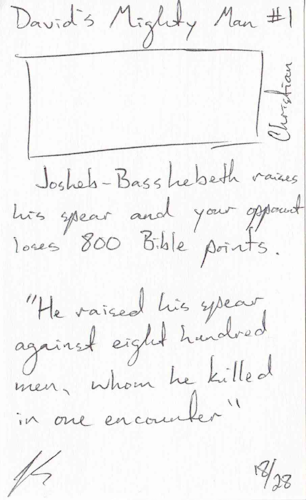 David's Mighty Man #1
Christian
Josheb-Basshebeth raises
his spear and your oppount
loses 800 Bible points.
"He raised his spear
against eight hundred
men, whom he killed
in one encounter"
18/28